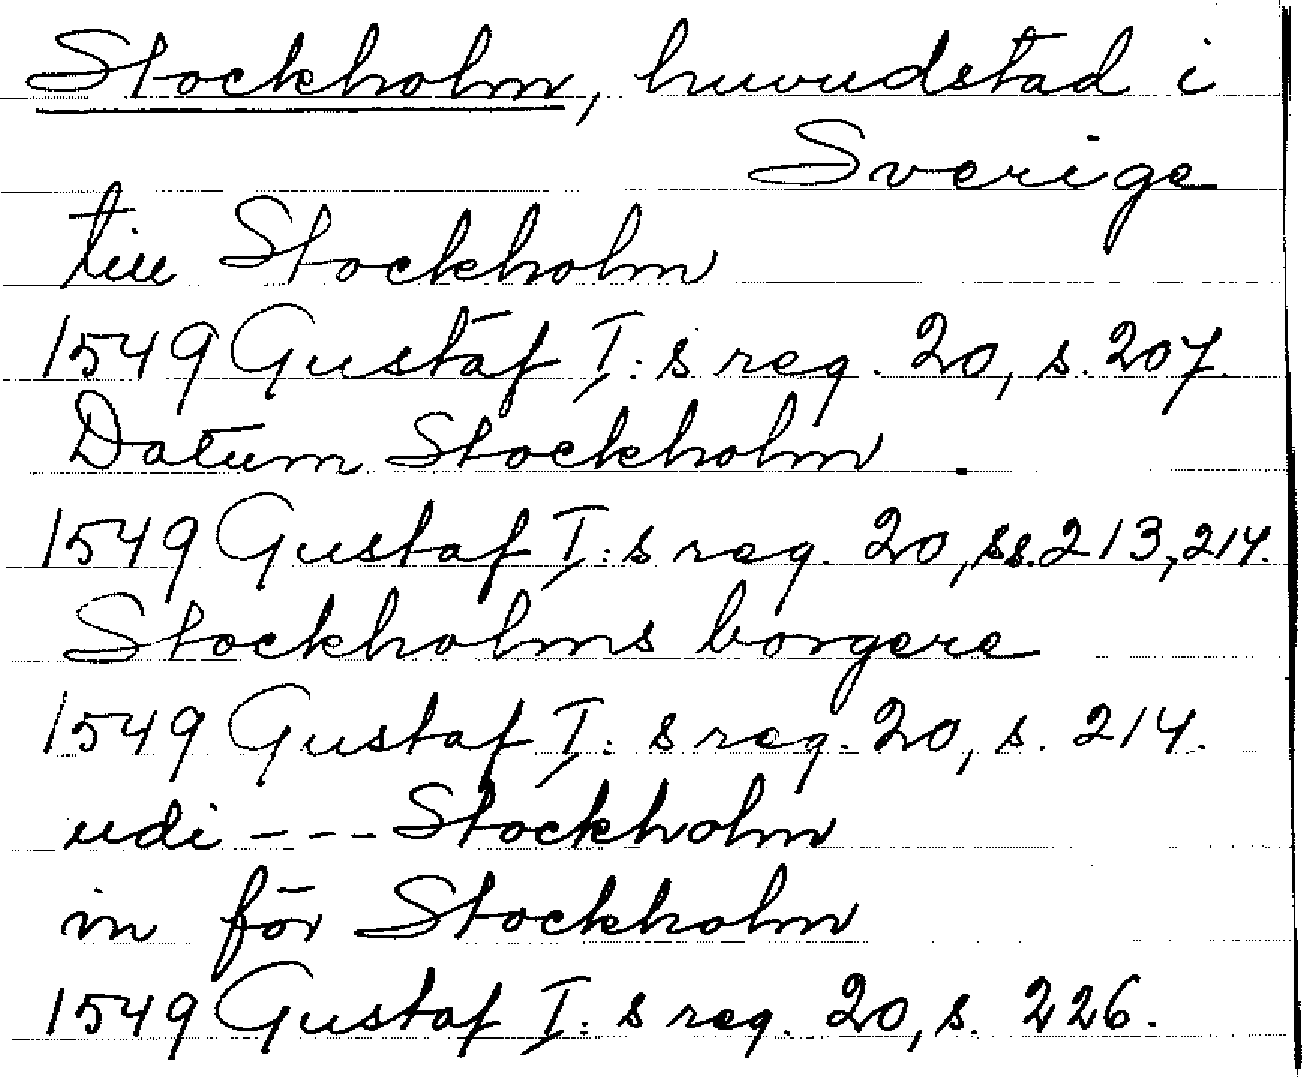 Stockholm, huvudstad i
Sverige
till Stockholm
1549 Gustaf I:s reg. 20, s. 207.
Datum Stockholm.
1549 Gustaf I:s reg. 20, ss. 213, 214.
Stockholms borgere
1549 Gustaf I:s reg. 20, s. 214.
udi --- Stockholm
in för Stockholm
1549 Gustaf I:s reg. 20, s. 226.